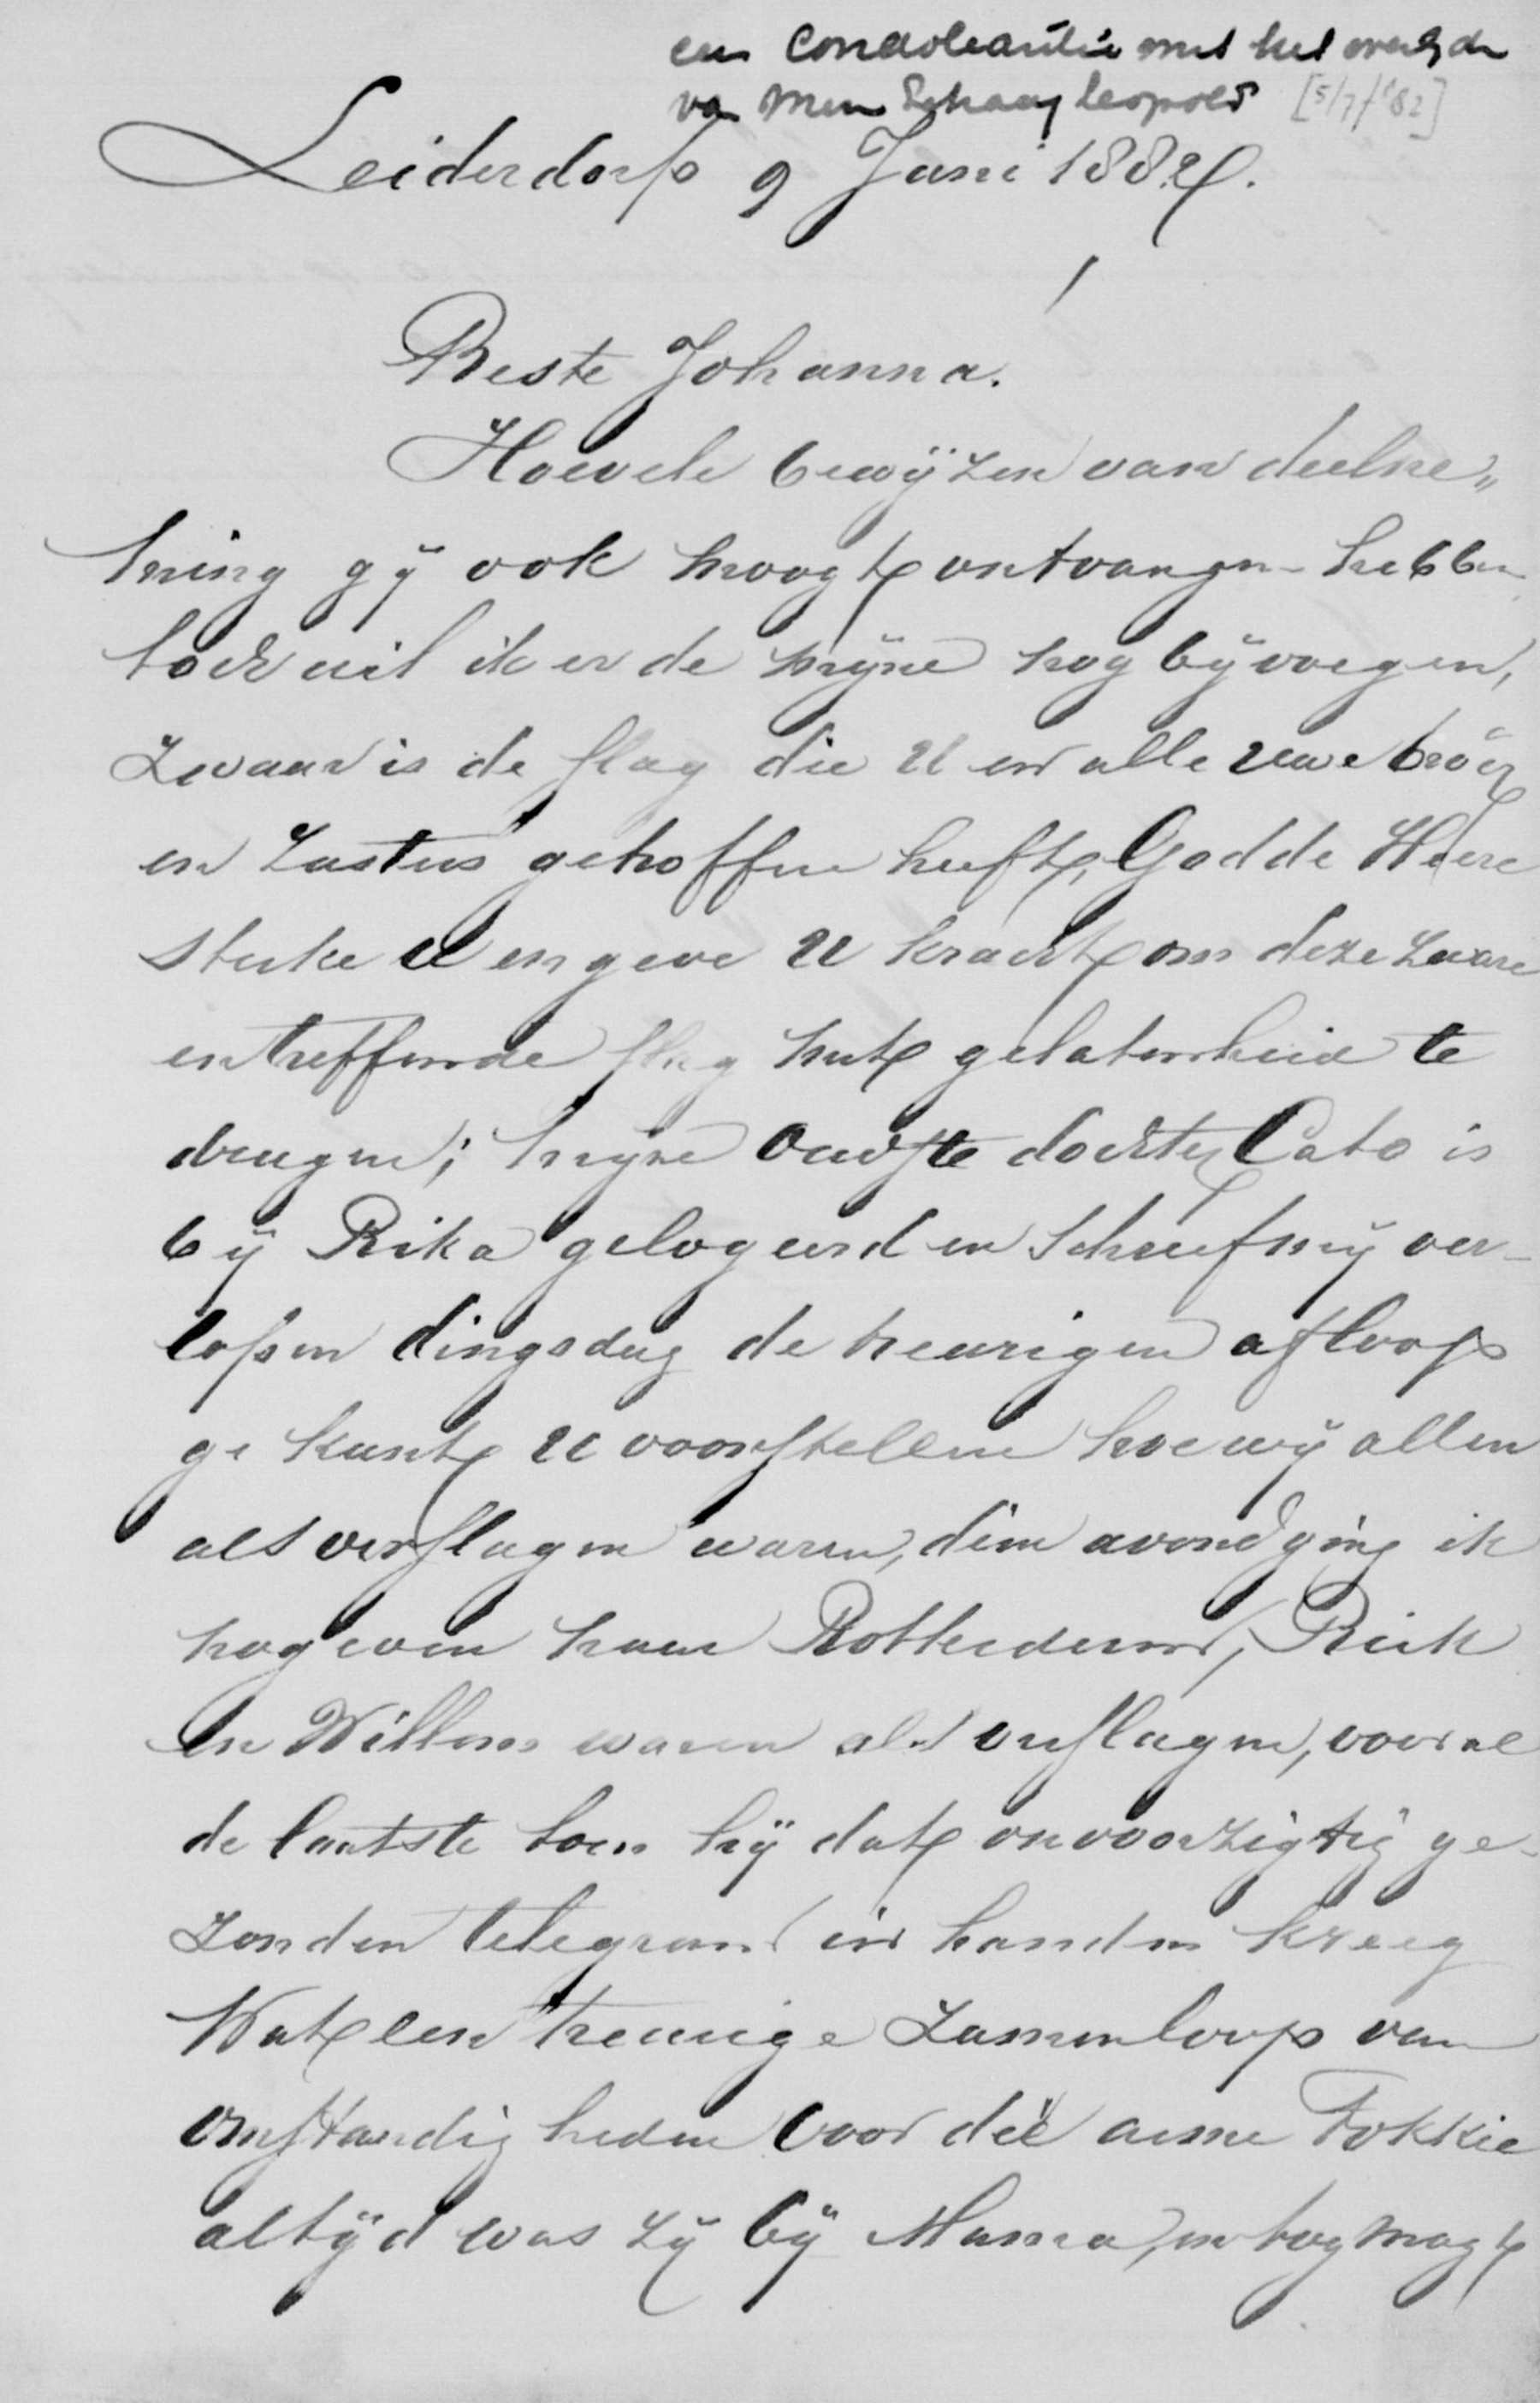 een Condoleantie met het overlijden
van Mevr Schaay Leopold [5/7/'82]
Leiderdorp 9 Juni 1882.
Beste Johanna!
Hoevele bewijzen van deelne„
ming gij ook moogt ontvangen hebben
toch wil ik er de mijne nog bijvoegen,
Zwaar is de slag die U en alle uwe broêrs
en Zusters getroffen heeft, God de Heere
sterke U en geve U kracht om deze zware
en treffende slag met gelatenheid te
dragen; mijne oudste dochter Cato is
bij Rika gelogeerd en schreef mij ver-
lossen dingsdag de treurigen afloop
ge kunt U voorstellen hoe wij allen
als verslagen waren, dien avond ging ik
nog even naar Rotterdam, Riek
en Willem waren als verslagen, vooral
de laatste toen hij dat onvoorzigtig ge-
zonden telegram in handen kreeg
Wat een treurige Zamenloop van
omstandigheden voor die arme Fokkie
altijd was zij bij Mama, en tog mogt